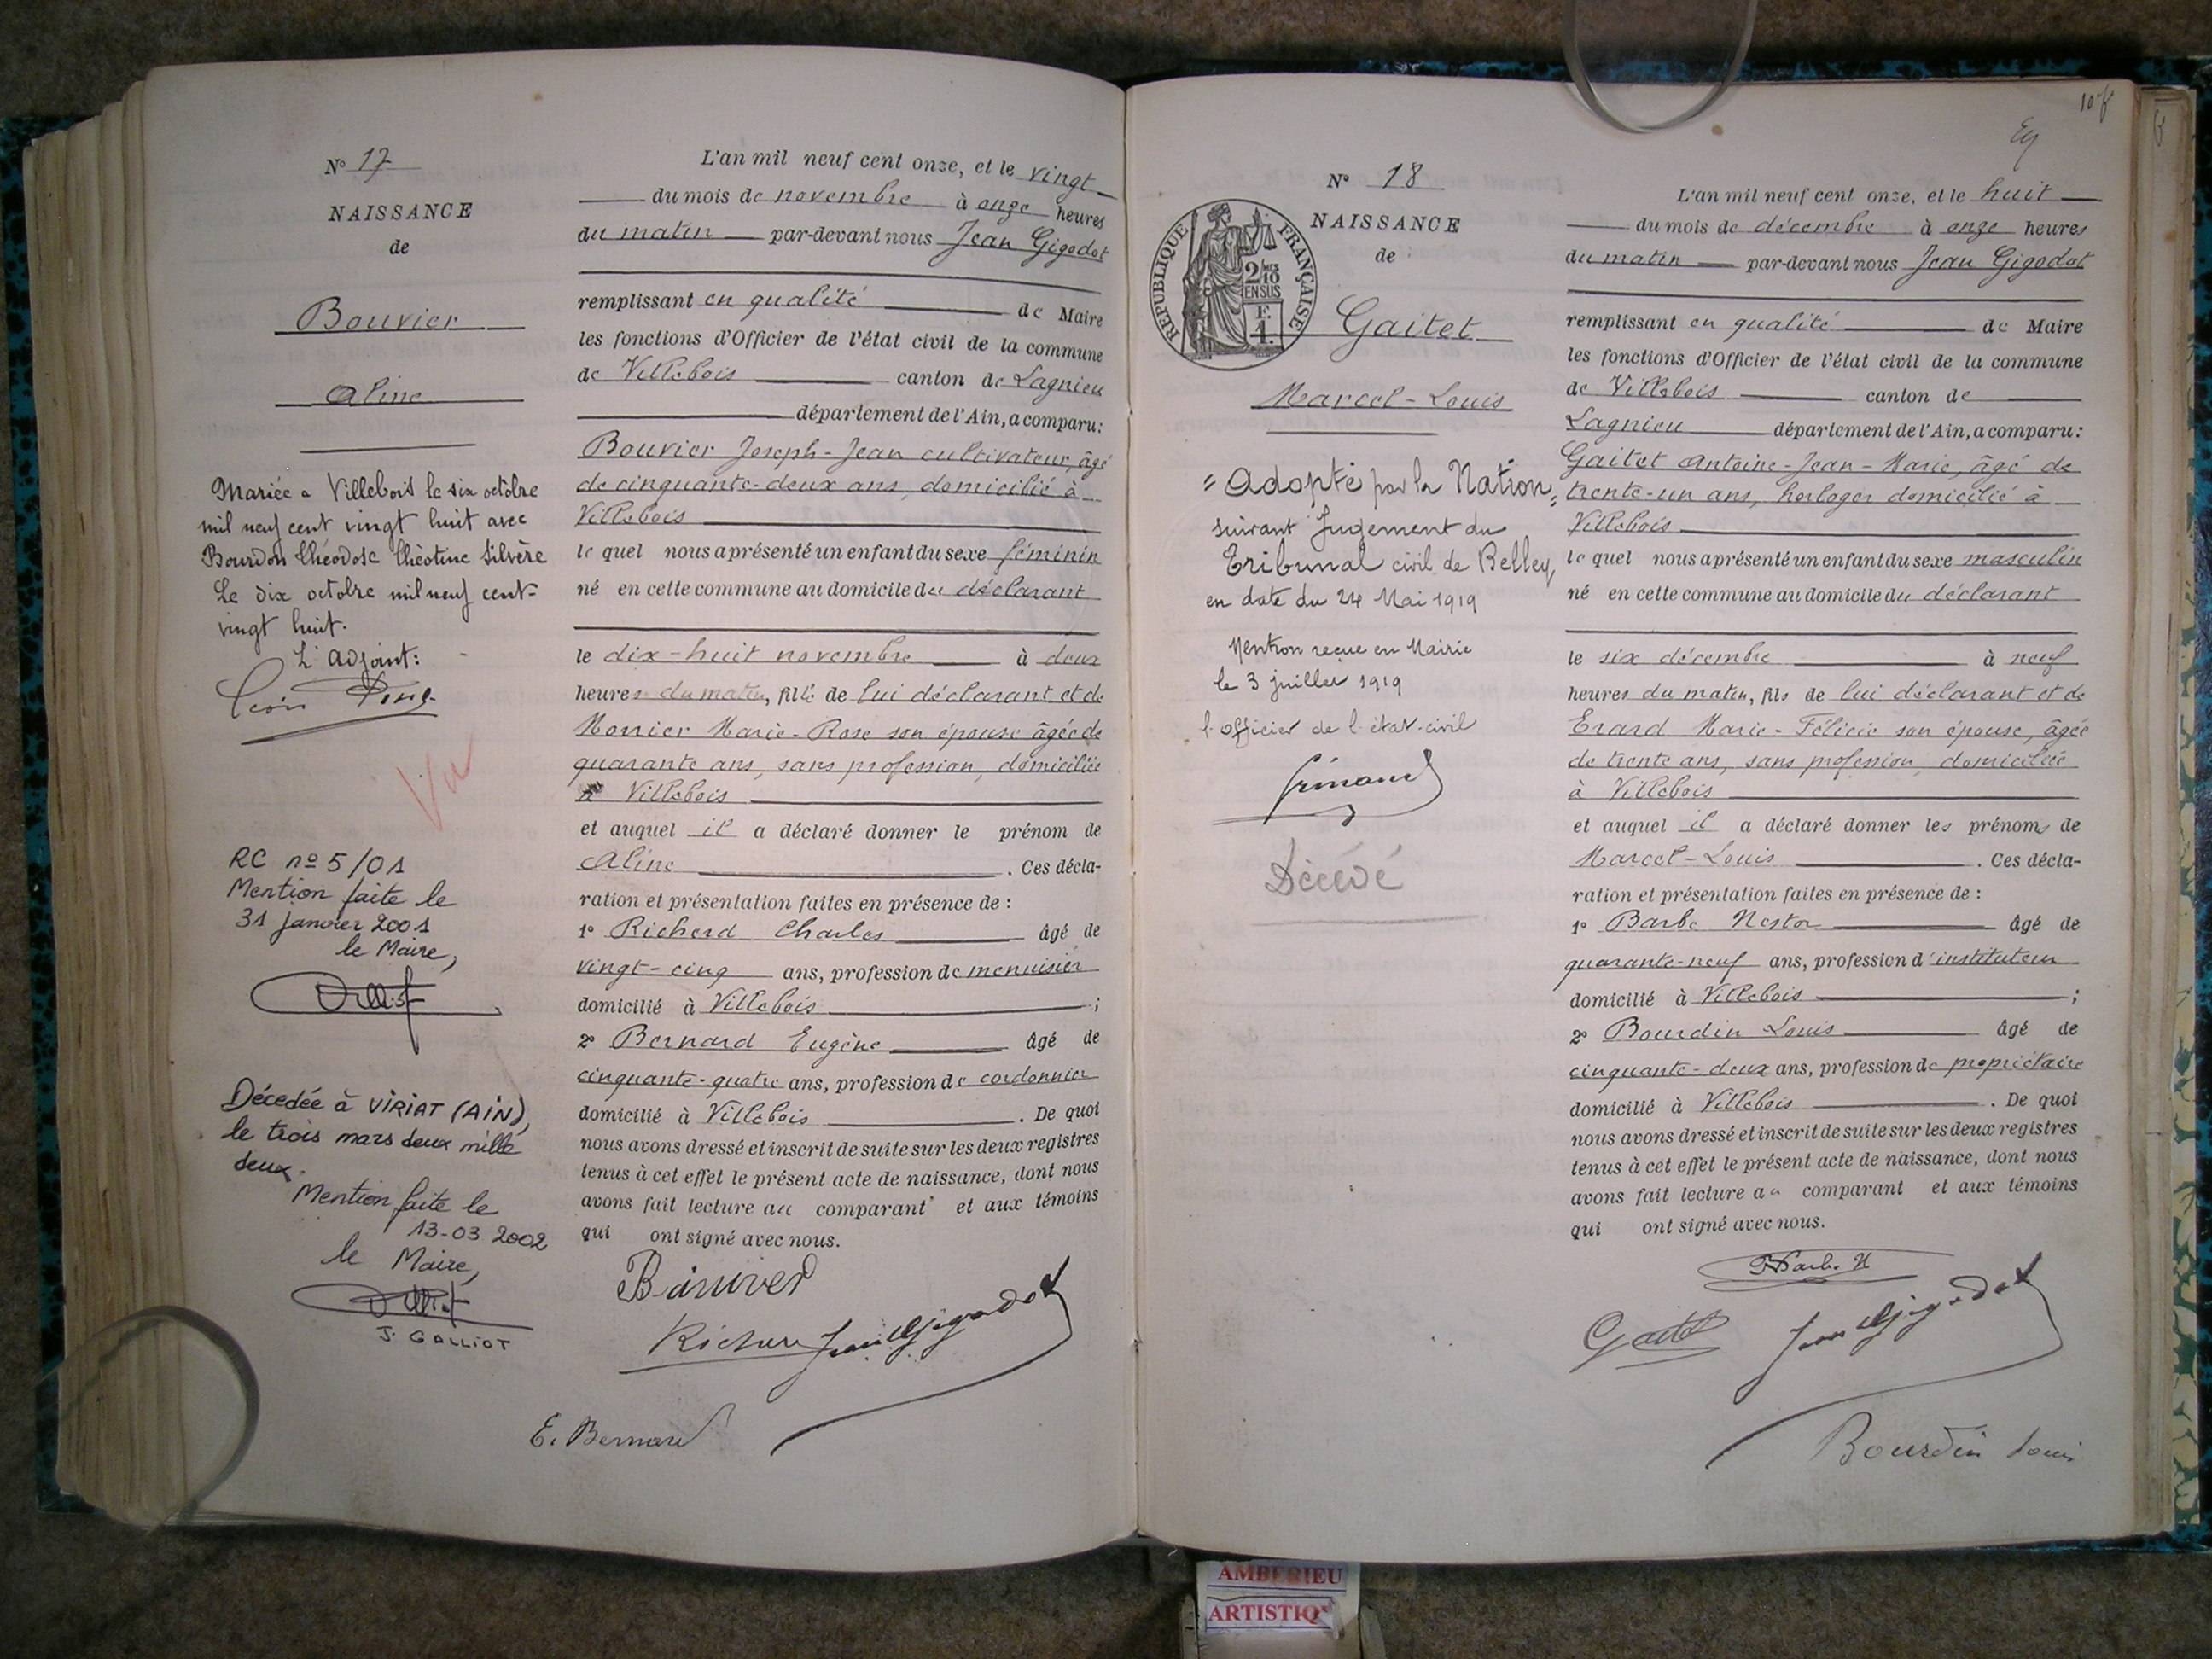 Nº 17
NAISSANCE
de
Bouvier
Aline
Mariée à Villebois le six octobre
mil neuf cent vingt huit avec
Bourdon Théodose Théotime Silvère
Le dix octobre mil neuf cent-
vingt huit.
L'adjoint:
Léon
Vu
RC nº 5/01
Mention faite le
31 Janvier 2001
le Maire,
Décedée à VIRIAT (AIN),
le trois mars deux mille
deux.
Mention faite le
13-03 2002
le Maire,
J. GALLIOT
L'an mil neuf cent onze, et le vingt
du mois de novembre à onze heures
du matin par-devant nous Jean Gigodot
remplissant en qualité de Maire
les fonctions d'Officier de l'état civil de la commune
de Villebois canton de Lagnieu
département de l'Ain, a comparu:
Bouvier Joseph-Jean cultivateur, âgé
de cinquante-deux ans, domicilié à
Villebois
le quel nous a présenté un enfant du sexe féminin
né en cette commune au domicile du déclarant
le dix-huit novembre à deux
heures du matin, fille de lui déclarant et de
Monier Marie-Rose son épouse âgée de
quarante ans, sans profession, domiciliée
à Villebois
et auquel il a déclaré donner le prénom de
Aline . Ces décla-
ration et présentation faites en présence de :
1º Richerd Charles âgé de
vingt-cinq ans, profession de menuisier
domicilié à Villebois ;
2º Bernard Eugène âgé de
cinquante-quatre ans, profession de cordonnier
domicilié à Villebois . De quoi
nous avons dressé et inscrit de suite sur les deux registres
tenus à cet effet le présent acte de naissance, dont nous
avons fait lecture au comparant et aux témoins
qui ont signé avec nous.
Bouvier
Richerd Jean Gigodot
E. Bernard
Nº 18
RÉPUBLIQUE FRANÇAISE
2/10 EN SUS
F. 1.
NAISSANCE
de
Gaitet
Marcel-Louis
"Adopté par la Nation"
suivant Jugement du
Tribunal civil de Belley,
en date du 24 Mai 1919
Mention reçue en Mairie
le 3 juillet 1919
l'officier de l'état-civil
Décédé
L'an mil neuf cent onze, et le huit
du mois de décembre à onze heures
du matin par-devant nous Jean Gigodot
remplissant en qualité de Maire
les fonctions d'Officier de l'état civil de la commune
de Villebois canton de
Lagnieu département de l'Ain, a comparu:
Gaitet Antoine-Jean-Marie, âgé de
trente-un ans, horloger domicilié à
Villebois
le quel nous a présenté un enfant du sexe masculin
né en cette commune au domicile du déclarant
le six décembre à neuf
heures du matin, fils de lui déclarant et de
Erard Marie-Félicie son épouse, âgée
de trente ans, sans profession, domiciliée
à Villebois
et auquel il a déclaré donner les prénoms de
Marcel-Louis . Ces décla-
ration et présentation faites en présence de :
1º Barbe Nestor âgé de
quarante-neuf ans, profession d'instituteur
domicilié à Villebois ;
2º Bourdin Louis âgé de
cinquante-deux ans, profession de propriétaire
domicilié à Villebois . De quoi
nous avons dressé et inscrit de suite sur les deux registres
tenus à cet effet le présent acte de naissance, dont nous
avons fait lecture au comparant et aux témoins
qui ont signé avec nous.
Barbe N
Gaitet Jean Gigodot
Bourdin Louis
AMBERIEU
ARTISTIQ